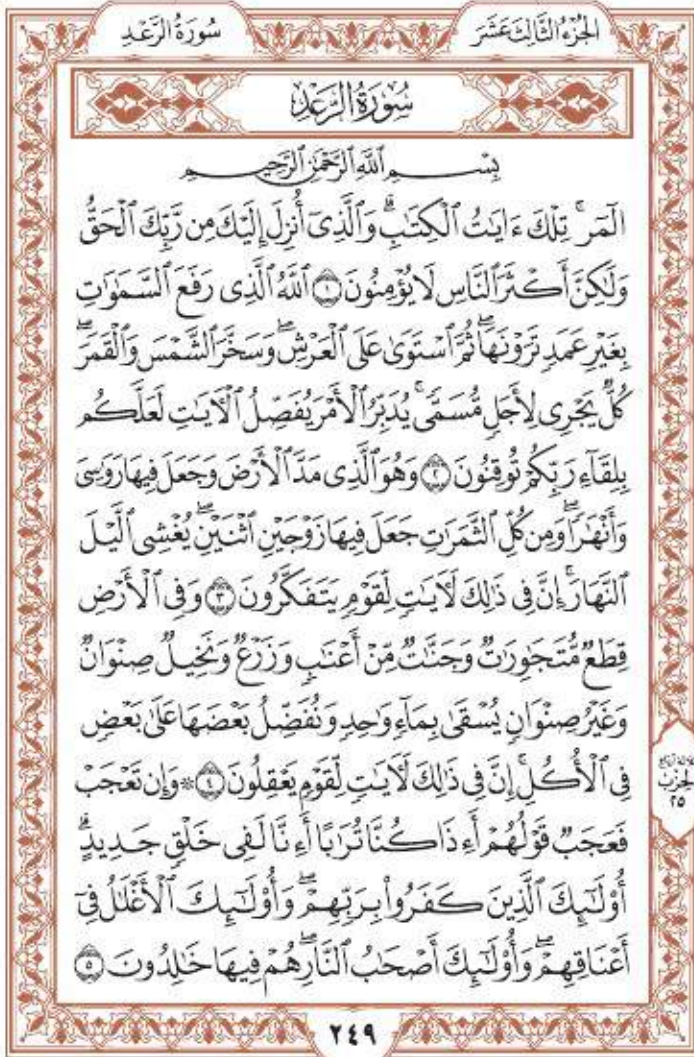 الجُزْءُ الثَّالِثَ عَشَرَ
سُورَةُ الرَّعْدِ
سُورَةُ الرَّعْدِ
بِسْمِ ٱللَّهِ ٱلرَّحْمَٰنِ ٱلرَّحِيمِ
الٓمٓرۚ تِلْكَ ءَايَٰتُ ٱلْكِتَٰبِۗ وَٱلَّذِىٓ أُنزِلَ إِلَيْكَ مِن رَّبِّكَ ٱلْحَقُّ
وَلَٰكِنَّ أَكْثَرَ ٱلنَّاسِ لَا يُؤْمِنُونَ ۝١ ٱللَّهُ ٱلَّذِى رَفَعَ ٱلسَّمَٰوَٰتِ
بِغَيْرِ عَمَدٍ تَرَوْنَهَاۖ ثُمَّ ٱسْتَوَىٰ عَلَى ٱلْعَرْشِۖ وَسَخَّرَ ٱلشَّمْسَ وَٱلْقَمَرَۖ
كُلٌّ يَجْرِى لِأَجَلٍ مُّسَمًّىۚ يُدَبِّرُ ٱلْأَمْرَ يُفَصِّلُ ٱلْءَايَٰتِ لَعَلَّكُم
بِلِقَآءِ رَبِّكُمْ تُوقِنُونَ ۝٢ وَهُوَ ٱلَّذِى مَدَّ ٱلْأَرْضَ وَجَعَلَ فِيهَا رَوَٰسِىَ
وَأَنْهَٰرًاۖ وَمِن كُلِّ ٱلثَّمَرَٰتِ جَعَلَ فِيهَا زَوْجَيْنِ ٱثْنَيْنِۖ يُغْشِى ٱلَّيْلَ
ٱلنَّهَارَۚ إِنَّ فِى ذَٰلِكَ لَءَايَٰتٍ لِّقَوْمٍ يَتَفَكَّرُونَ ۝٣ وَفِى ٱلْأَرْضِ
قِطَعٌ مُّتَجَٰوِرَٰتٌ وَجَنَّٰتٌ مِّنْ أَعْنَٰبٍ وَزَرْعٌ وَنَخِيلٌ صِنْوَانٌ
وَغَيْرُ صِنْوَانٍ يُسْقَىٰ بِمَآءٍ وَٰحِدٍ وَنُفَضِّلُ بَعْضَهَا عَلَىٰ بَعْضٍ
فِى ٱلْأُكُلِۚ إِنَّ فِى ذَٰلِكَ لَءَايَٰتٍ لِّقَوْمٍ يَعْقِلُونَ ۝٤ ۞ وَإِن تَعْجَبْ
فَعَجَبٌ قَوْلُهُمْ أَءِذَا كُنَّا تُرَٰبًا أَءِنَّا لَفِى خَلْقٍ جَدِيدٍۗ
أُو۟لَٰٓئِكَ ٱلَّذِينَ كَفَرُوا۟ بِرَبِّهِمْۖ وَأُو۟لَٰٓئِكَ ٱلْأَغْلَٰلُ فِىٓ
أَعْنَاقِهِمْۖ وَأُو۟لَٰٓئِكَ أَصْحَٰبُ ٱلنَّارِۖ هُمْ فِيهَا خَٰلِدُونَ ۝٥
الحِزْب
٢٥
٢٤٩